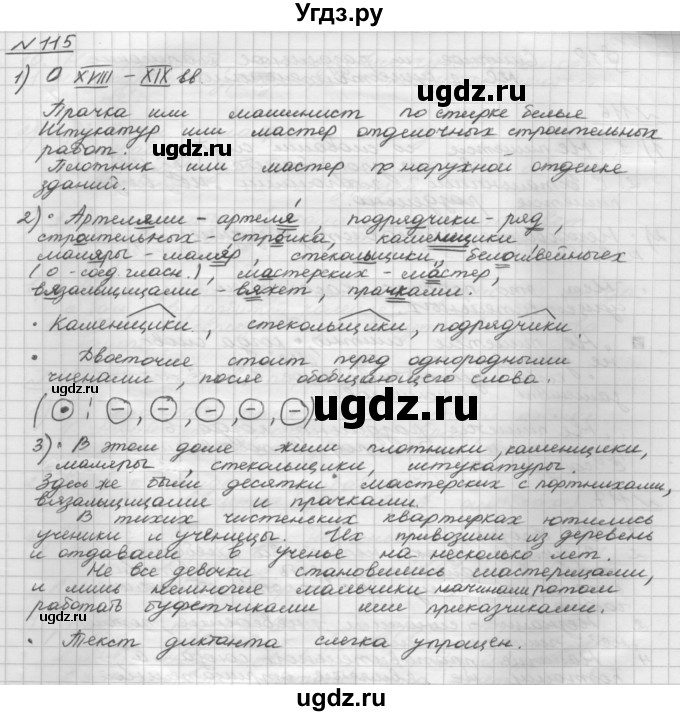 Угдз.ру
№ 115
1) О XVIII – XIX вв
Прачка или машинист по стирке белья
Штукатур или мастер отделочных строительных
работ.
Плотник или мастер по наружной отделке
зданий.
2) • Артелями – артеля, подрядчики – ряд,
строительных – стройка, каменщики
маляры – маляр, стекольщики, белошвейных
(о – соед. гласн.), мастерских – мастер,
вязальщицами – вяжет, прачками.
• Каменщики, стекольщики, подрядчики.
• Двоеточие стоит перед однородными
членами, после обобщающего слова.
(⊙ : ⊖, ⊖, ⊖, ⊖, ⊖)
3) • В этом доме жили плотники, каменщики,
маляры, стекольщики, штукатуры.
Здесь же были десятки мастерских с портнихами,
вязальщицами и прачками.
В тихих чистеньких квартирках ютились
ученики и ученицы. Их привозили из деревень
и отдавали в ученье на несколько лет.
Не все девочки становились мастерицами,
и лишь немногие мальчики начинали потом
работать буфетчиками или приказчиками.
• Текст диктанта слегка упрощен.
ugdz.ru
ugdz.ru
ugdz.ru
ugdz.ru
ugdz.ru
ugdz.ru
ugdz.ru
ugdz.ru